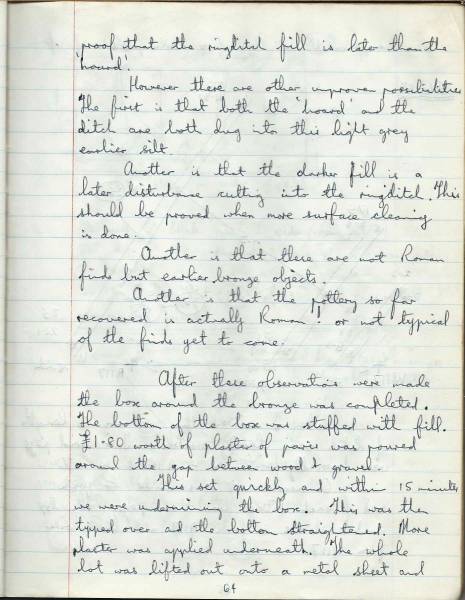 proof that the ringditch fill is later than the
'hoard'.
However there are other unproven possibilities
The first is that both the 'hoard' and the
ditch are both dug into this light grey
earlier silt.
Another is that the darker fill is a
later disturbance cutting into the ringditch. This
should be proved when more surface cleaning
is done.
Another is that these are not Roman
finds but earlier bronze objects.
Another is that the pottery so far
recovered is actually Roman! or not typical
of the finds yet to come.
After these observations were made
the box around the bronze was completed.
The bottom of the box was stuffed with fill.
£1.80 worth of plaster of paris was poured
around the gap between wood & gravel.
This set quickly and within 15 minutes
we were undermining the box. This was then
typped over ad the bottom straightened. More
plaster was applied underneath. The whole
lot was lifted out onto a metal sheet and
64